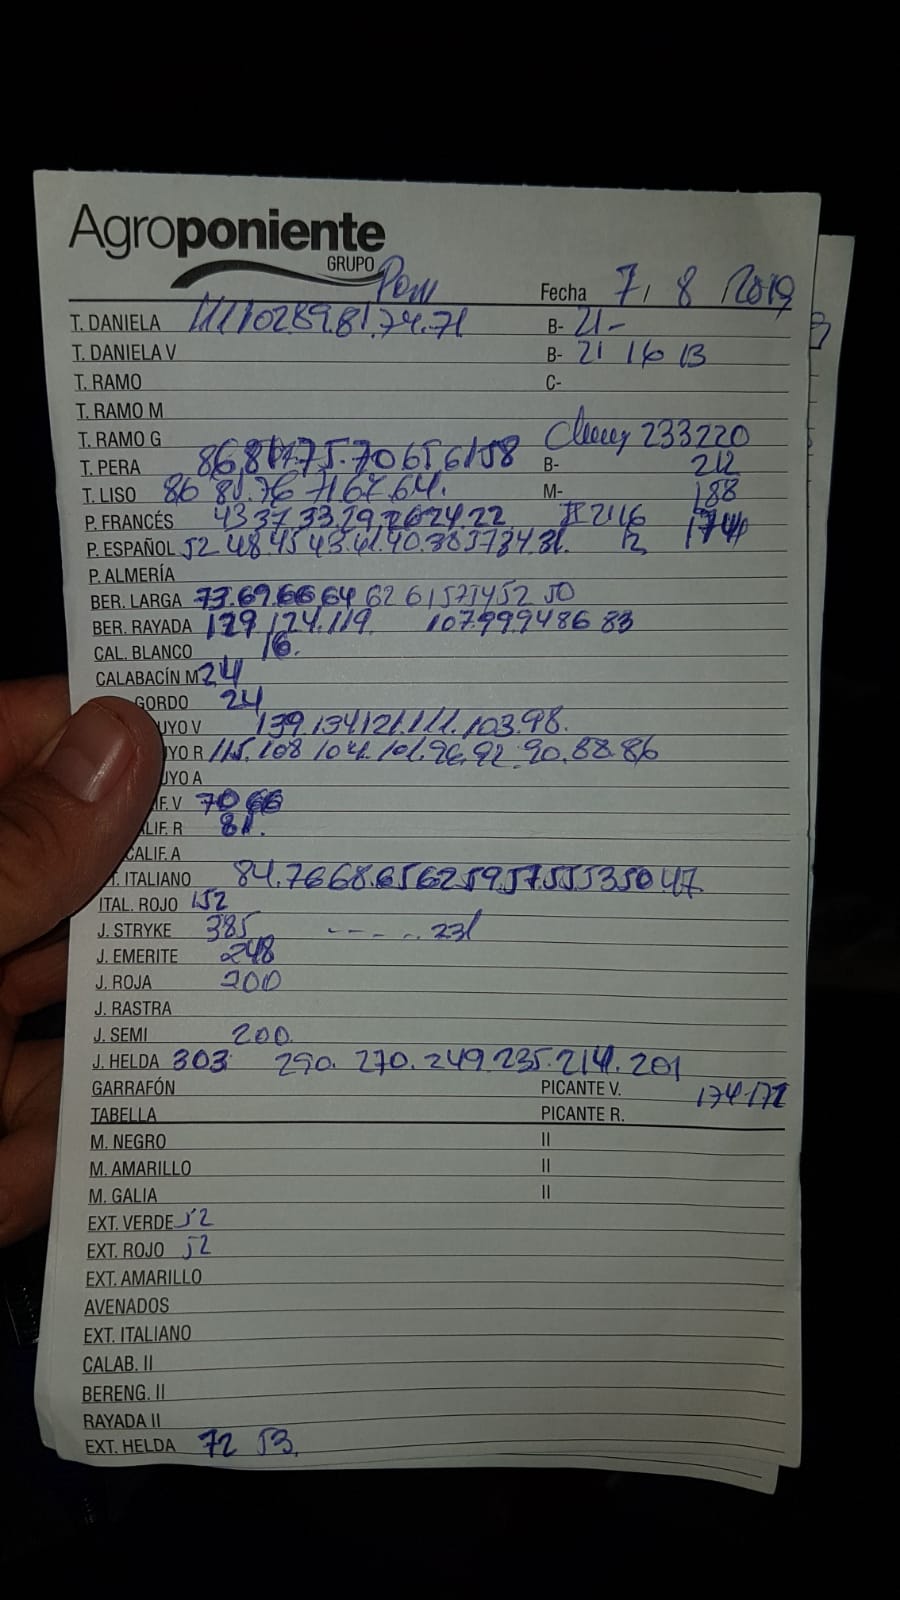 Agroponiente
GRUPO
Fecha 7/ 8 /2019
T. DANIELA 111 102 89.81.74.71 B- 21-
T. DANIELA V B- 21 16 13
T. RAMO C-
T. RAMO M
T. RAMO G 233220
T. PERA 86,81 75.70 65 61 58 B- 212
T. LISO 86 81.76 71 67.64. M- 188
P. FRANCÉS 43 37.33.29.26 24.22 II 21 16 174
P. ESPAÑOL 52 48 45 43.41.40.38 37 34.31. 12
P. ALMERÍA
BER. LARGA 73.69.66 64 62 61 57 54 52 50
BER. RAYADA 129 124.119 107.99 94 86 83
CAL. BLANCO 16.
CALABACÍN M 24
GORDO 24
UYO V 139.134 121.111.103.98.
UYO R 115.108 104.101.96.92.90.88.86
UYO A
IF. V 70 66
ALIF. R 81.
CALIF. A
T. ITALIANO 84.76 68.65 62 59.57 55 53 50 47.
ITAL. ROJO 152
J. STRYKE 385 - - - . . 231
J. EMERITE 248
J. ROJA 200
J. RASTRA
J. SEMI 200.
J. HELDA 303 290. 270. 249.235.214.201
GARRAFÓN PICANTE V. 174 172
TABELLA PICANTE R.
M. NEGRO II
M. AMARILLO II
M. GALIA II
EXT. VERDE 52
EXT. ROJO 52
EXT. AMARILLO
AVENADOS
EXT. ITALIANO
CALAB. II
BERENG. II
RAYADA II
EXT. HELDA 72 53.